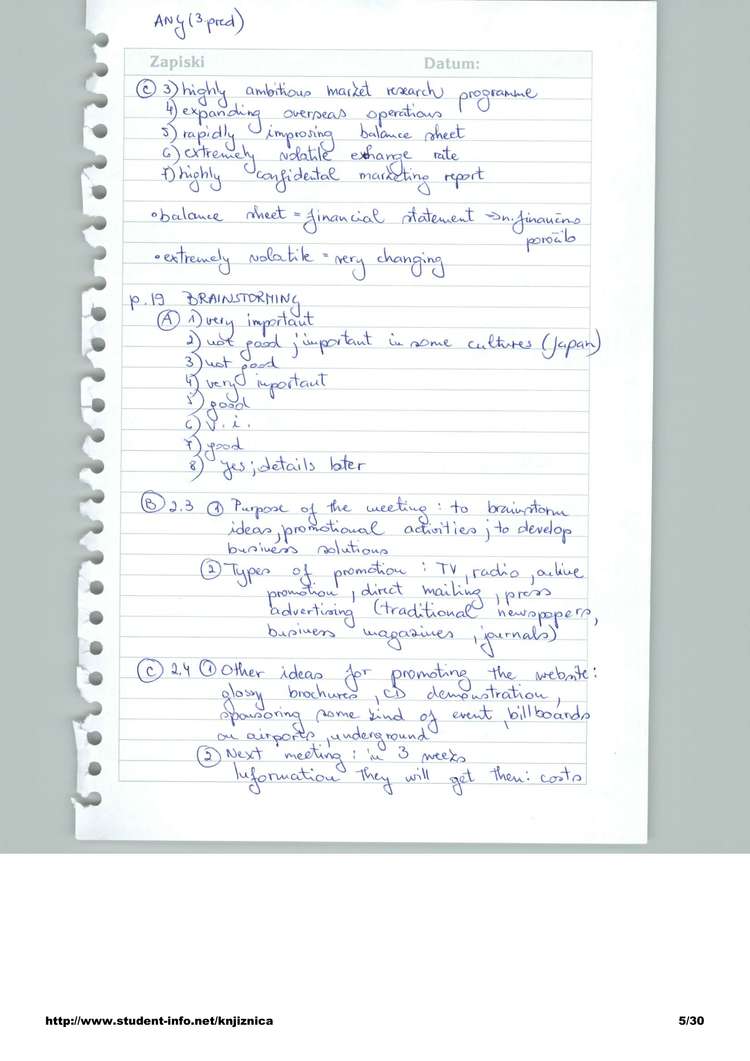 ANG (3.pred)
Zapiski Datum:
C 3) highly ambitious market research programme
4) expanding overseas operations
5) rapidly improsing balance sheet
6) extremely volatile exhange rate
7) highly confidental marketing report
• balance sheet = financial statement => n. finančno
poročilo
• extremely volatile = very changing
p. 19 BRAINSTORMING
A 1) very important
2) not good ; important in some cultures (Japan)
3) not good
4) very important
5) good
6) v. i.
7) good
8) yes; details later
B 2.3 1 Purpose of the meeting : to brainstorm
ideas, promotional activities ; to develop
business solutions
2 Types of promotion : TV, radio, online
promotion, direct mailing, press
advertising (traditional newspopers,
business magazines, journals)
C 2.4 1 Other ideas for promoting the website:
glossy brochures, CD demonstration,
sponsoring some kind of event, billboards
on airports, underground
2 Next meeting : in 3 weeks
Information they will get then: costs
http://www.student-info.net/knjiznica 5/30